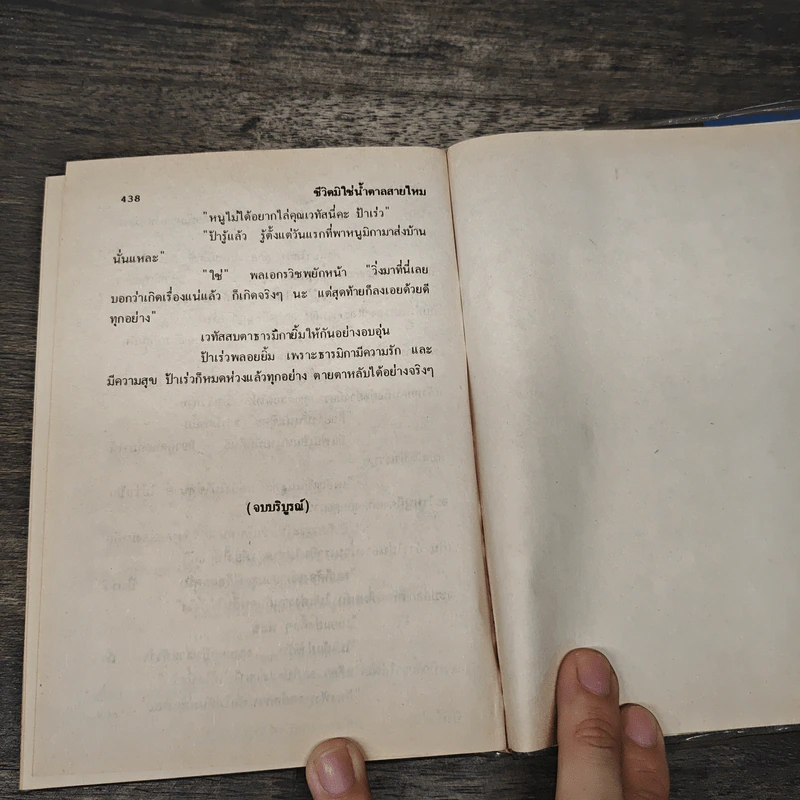 438
ชีวิตมิใช่น้ำตาลสายไหม
"หนูไม่ได้อยากไล่คุณเวทัสนี่คะ ป้าเร่ว"
"ป้ารู้แล้ว รู้ตั้งแต่วันแรกที่พาหนูมิกามาส่งบ้าน
นั่นแหละ"
"ใช่" พลเอกรวิชพยักหน้า "วิ่งมาที่นี่เลย
บอกว่าเกิดเรื่องแน่แล้ว ก็เกิดจริงๆ นะ แต่สุดท้ายก็ลงเอยด้วยดี
ทุกอย่าง"
เวทัสสบตาธารมิกายิ้มให้กันอย่างอบอุ่น
ป้าเร่วพลอยยิ้ม เพราะธารมิกามีความรัก และ
มีความสุข ป้าเร่วก็หมดห่วงแล้วทุกอย่าง ตายตาหลับได้อย่างจริงๆ
(จบบริบูรณ์)